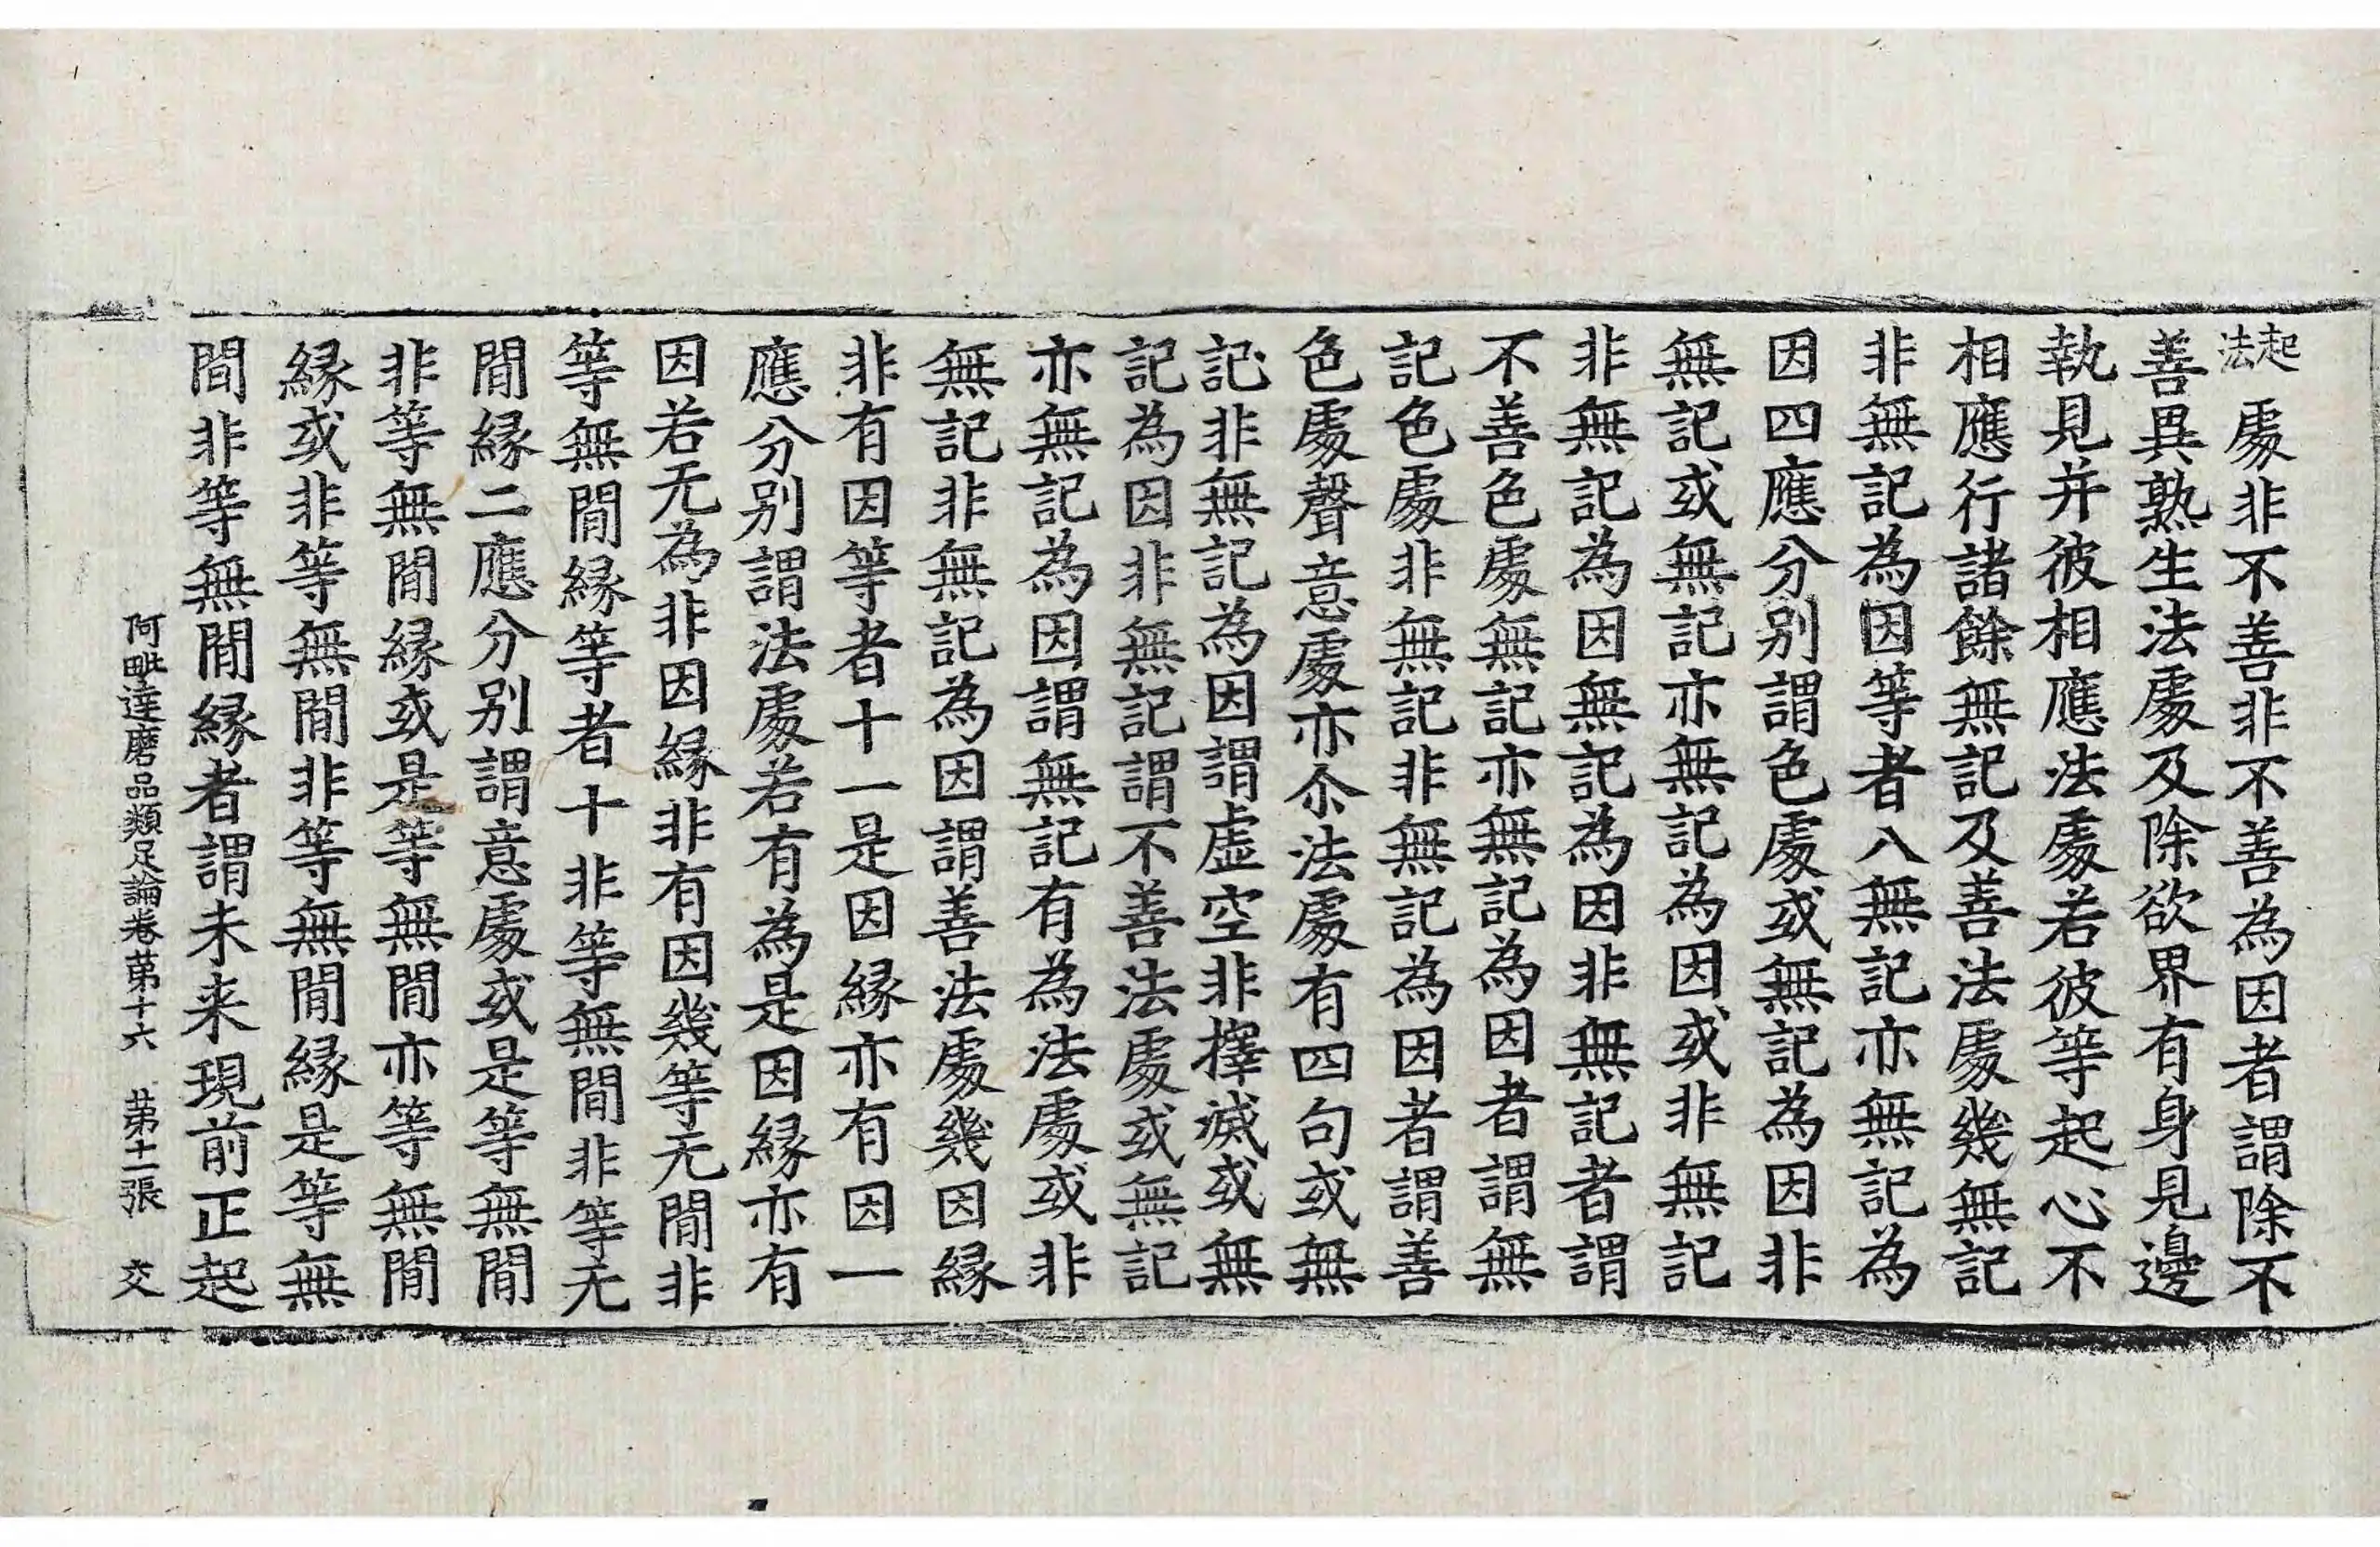 起法處非不善非不善為因者謂除不
善異熟生法處及除欲界有身見邊
執見并彼相應法處若彼等起心不
相應行諸餘無記及善法處幾無記
非無記為因等者八無記亦無記為
因四應分別謂色處或無記為因非
無記或無記亦無記為因或非無記
非無記為因無記為因非無記者謂
不善色處無記亦無記為因者謂無
記色處非無記非無記為因者謂善
色處聲意處亦尒法處有四句或無
記非無記為因謂虛空非擇滅或無
記為因非無記謂不善法處或無記
亦無記為因謂無記有為法處或非
無記非無記為因謂善法處幾因緣
非有因等者十一是因緣亦有因一
應分別謂法處若有為是因緣亦有
因若无為非因緣非有因幾等无間非
等無間緣等者十非等無間非等无
間緣二應分別謂意處或是等無間
非等無間緣或是等無間亦等無間
緣或非等無間非等無間緣是等無
間非等無間緣者謂未来現前正起
阿毗達磨品類足論卷第十六 第十二張 交